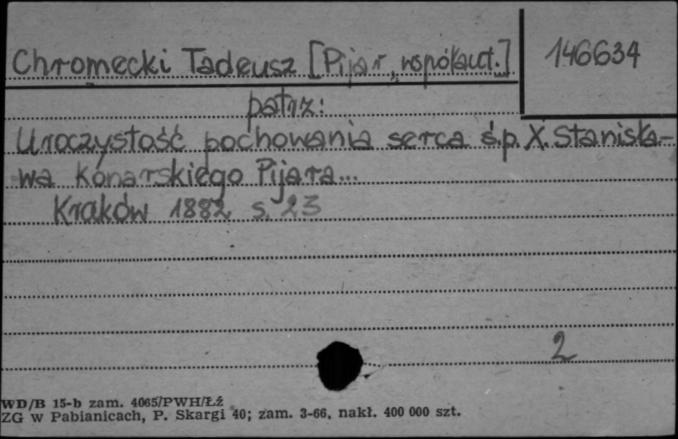 Chromecki Tadeusz [Pijar, współaut.]
146634
patrz:
Uroczystość pochowania serca ś.p. X. Stanisła-
wa Konarskiego Pijara...
Kraków 1882 s. 23
2
WD/B 15-b zam. 4065/PWH/Łź
ZG w Pabianicach, P. Skargi 40; zam. 3-66, nakł. 400 000 szt.